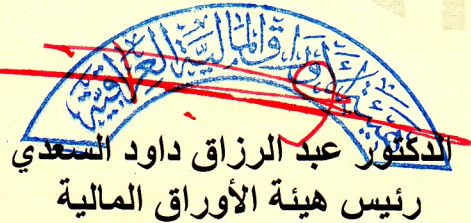 هيئة الأوراق المالية العراقية
الدكتور عبد الرزاق داود السعدي
رئيس هيئة الأوراق المالية